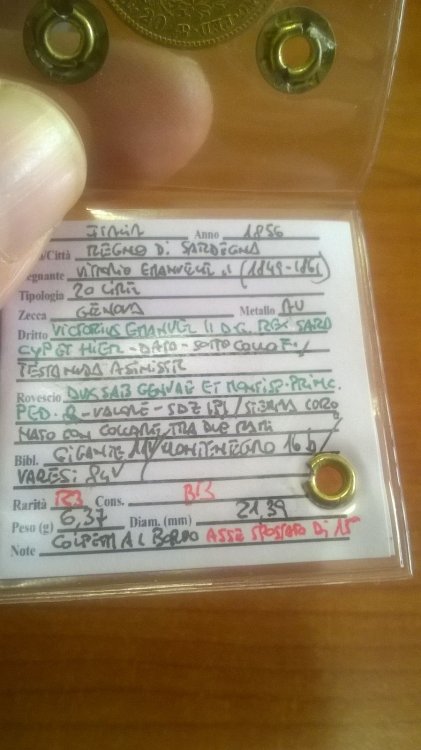 20
ITALIA Anno 1856
/Città REGNO DI SARDEGNA
egnante VITTORIO EMANUELE II (1849-1861)
Tipologia 20 LIRE
Zecca GENOVA Metallo AU
Dritto VICTORIUS EMANUEL II D.G. REX SARD
CYP ET HIER - DATA - SOTTO COLLO F. /
TESTA NUDA A SINISTR
Rovescio DUX SAB GENVAE ET MONTISF. PRINC.
PED. & - VALORE - / STEMMA CORO
NATO CON COLLARE TRA DUE RAMI
Bibl. GIGANTE / MONTENEGRO 16 b/
VARESI 84
Rarità R3 Cons. BB
Peso (g) 6,37 Diam. (mm) 21,39
Note COLPETTI AL BORDO ASSE SPOSTATO DI 15°